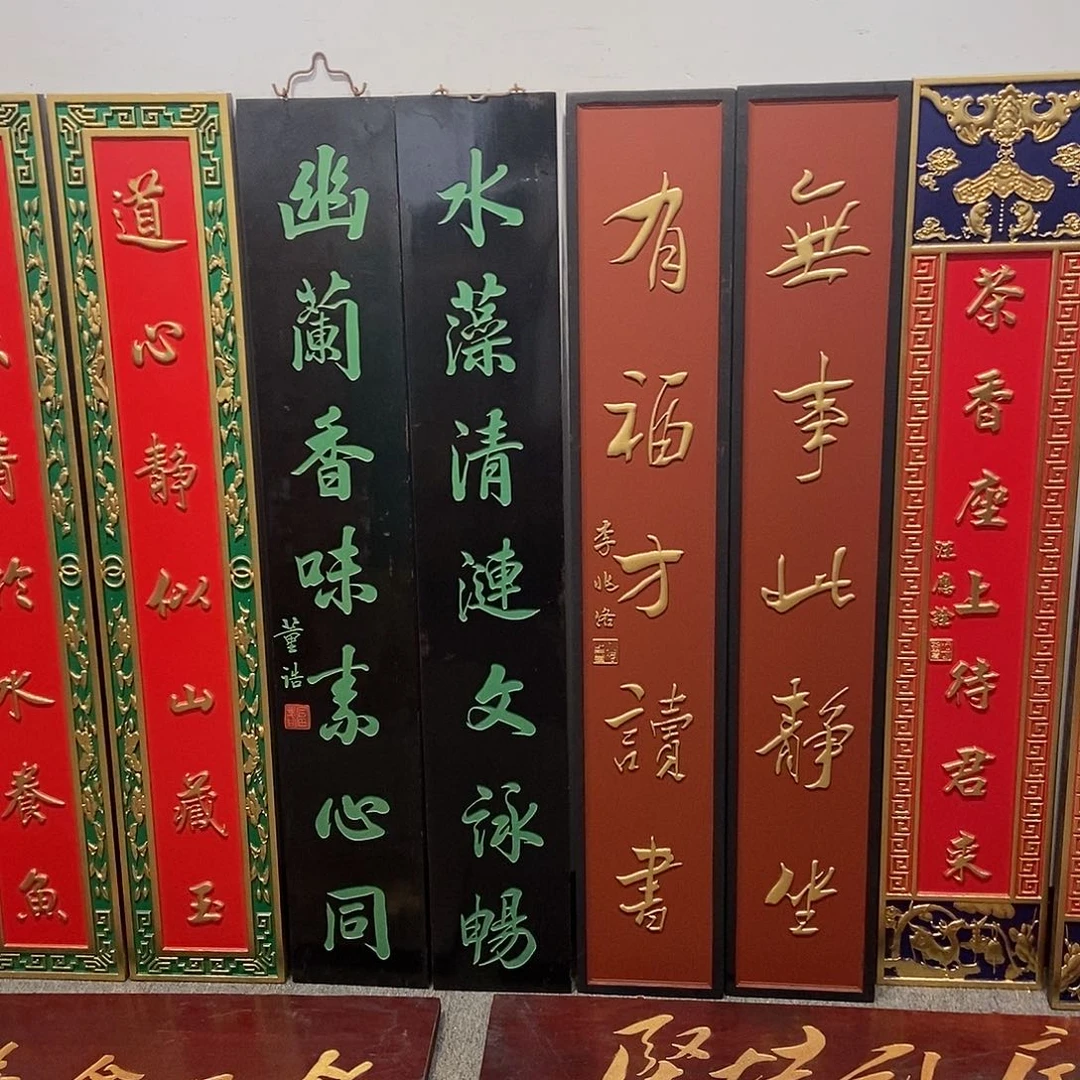 茶香座上待君來
汪應銓
無事此靜坐
有福方讀書
李兆洛
水藻清漣文詠暢
幽蘭香味素心同
董誥
道心靜似山藏玉
清於水養魚